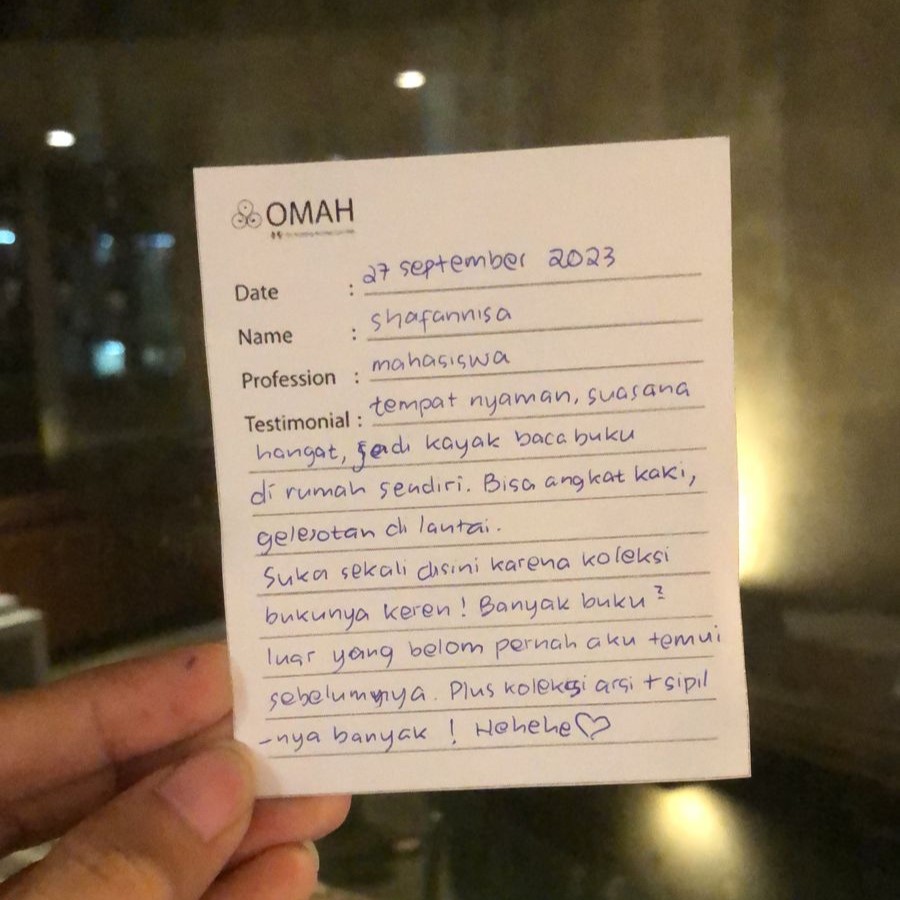 OMAH
Date : 27 september 2023
Name : shafannisa
Profession : mahasiswa
Testimonial : tempat nyaman, suasana
hangat, jadi kayak baca buku
di rumah sendiri. Bisa angkat kaki,
gelesotan di lantai.
Suka sekali disini karena koleksi
bukunya keren! Banyak buku²
luar yang belom pernah aku temui
sebelumnya. Plus koleksi arsi + sipil
-nya banyak ! Hehehe♡